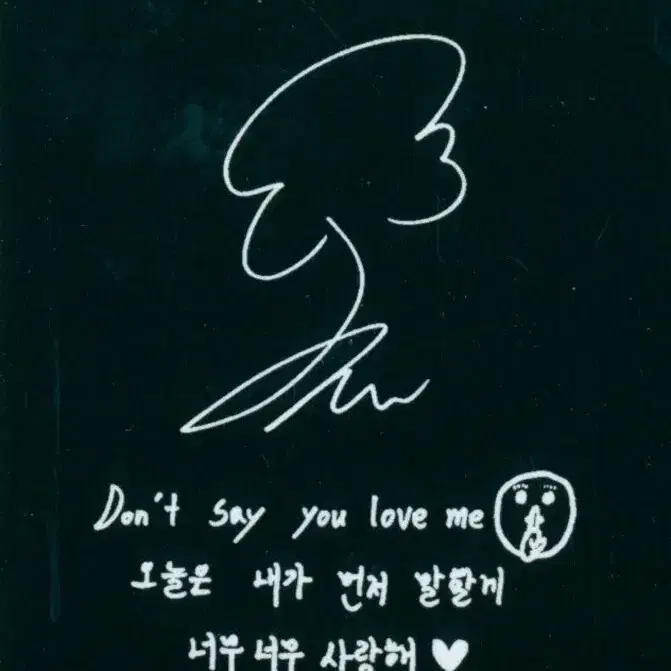 Don't say you love me
오늘은 내가 먼저 말할게
너무 너무 사랑해 ♥